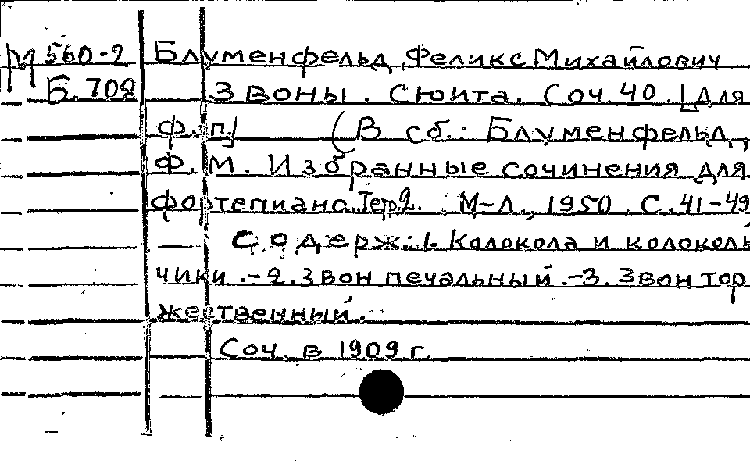 М 560-2 Блуменфельд, Феликс Михайлович
Б. 702 Звоны. Сюита. Соч. 40. [Для
ф.-п.] (В сб.: Блуменфельд,
Ф. М. Избранные сочинения для
фортепиано. Тетр. 2. М-Л., 1950. С. 41-49
Содерж.: 1. Колокола и колоколь
чики. - 2. Звон печальный. - 3. Звон тор
жественный.
Соч. в 1909 г.